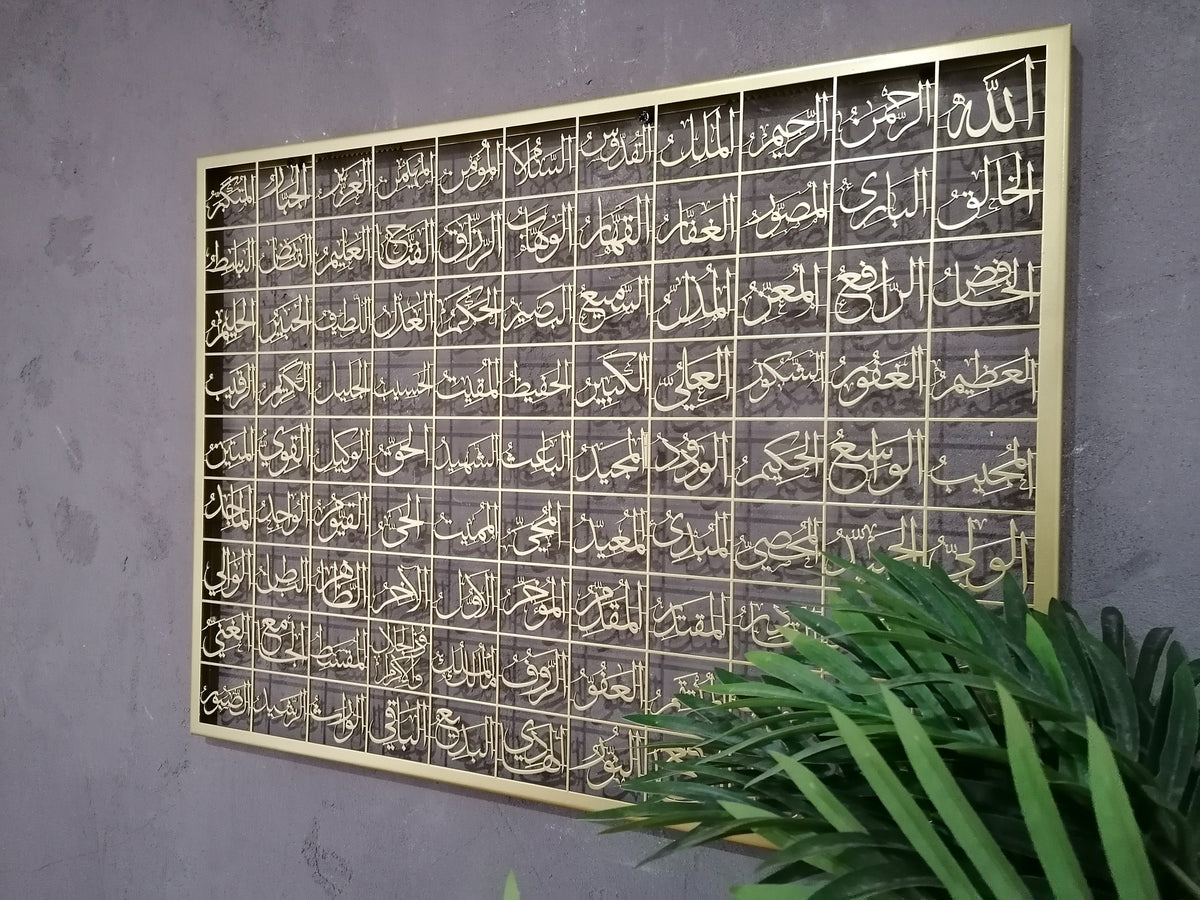 الله الرحمن الرحيم الملك القدوس السلام المؤمن المهيمن العزيز الجبار المتكبر
الخالق البارئ المصور الغفار القهار الوهاب الرزاق الفتاح العليم القابض الباسط
الخافض الرافع المعز المذل السميع البصير الحكم العدل اللطيف الخبير الحليم
العظيم الغفور الشكور العلي الكبير الحفيظ المقيت الحسيب الجليل الكريم الرقيب
المجيب الواسع الحكيم الودود المجيد الباعث الشهيد الحق الوكيل القوي المتين
الولي الحميد المحصي المبدئ المعيد المحيي المميت الحي القيوم الواجد الماجد
المقتدر المقدم المؤخر الأول الآخر الظاهر الباطن الوالي
العفو الرؤوف مالك الملك ذو الجلال والإكرام المقسط الجامع الغني
النور الهادي البديع الباقي الوارث الرشيد الصبور